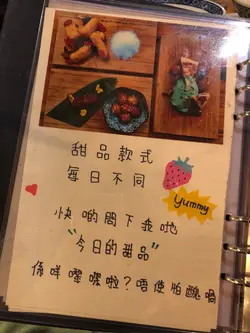 甜品款式
每日不同
Yummy
快啲問下我哋
"今日的甜品"
係咩嚟㗎啦？唔使怕醜喎